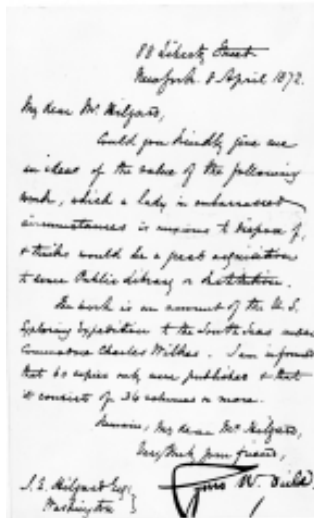 80 Liberty Street
New York. 8 April 1872.
My dear Mr. Hilgard,
Could you kindly give me
an idea of the value of the following
work, which a lady in embarrassed
circumstances is anxious to dispose of,
& thinks would be a great acquisition
to some Public Library or Institution.
The work is an account of the U. S.
Exploring Expedition to the South Seas under
Commodore Charles Wilkes. I am informed
that 60 copies only were published & that
it consists of 24 volumes or more.
Remain, My dear Mr Hilgard,
Very truly your friend,
W. Field
J. E. Hilgard Esq:
Washington